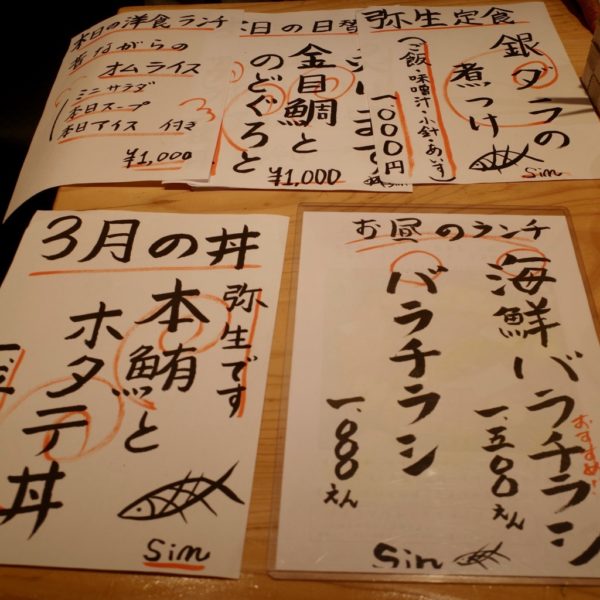 本日の洋食ランチ
昔ながらの
オムライス
ミニサラダ
本日スープ
本日アイス 付き
¥1,000
本日の日替
金目鯛と
のどぐろと
¥1,000
弥生定食
銀ダラの
煮つけ
(ご飯・味噌汁・小鉢・あいす)
1.000円
Sin
3月の丼
弥生です
本鮪と
ホタテ丼
Sin
お昼のランチ
海鮮バラチラシ
おすすめ!
一、五00えん
バラチラシ
一、000えん
Sin